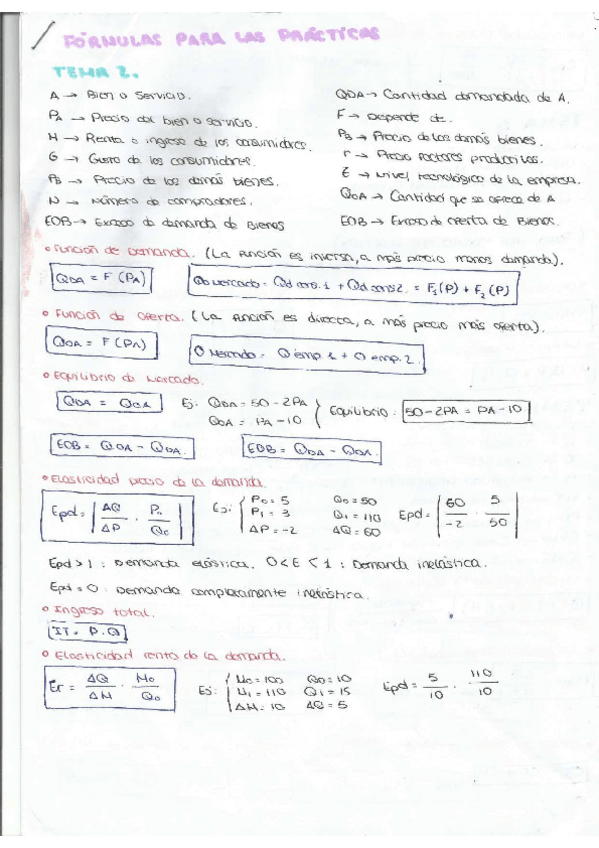 FÓRMULAS PARA LAS PRÁCTICAS
TEMA 2.
A → Bien o servicio.
PA → Precio del bien o servicio.
M → Renta o ingreso de los consumidores.
G → Gusto de los consumidores.
PB → Precio de los demás bienes.
N → Número de compradores.
EDB → Exceso de demanda de Bienes
QDA → Cantidad demandada de A.
F → Depende de.
PB → Precio de los demás bienes.
r → Precio factores productivos.
E → Nivel tecnológico de la empresa.
QOA → Cantidad que se ofrece de A
EOB → Exceso de oferta de Bienes.
• Función de Demanda. (La función es inversa, a más precio menos demanda).
QDA = F (PA)
QD Mercado = Qd cons. 1 + Qd cons 2. = F1(P) + F2(P)
• Función de oferta. (La función es directa, a más precio más oferta).
QOA = F (PA)
O Mercado = O emp. 1 + O emp. 2.
• Equilibrio de Mercado.
QDA = QOA
Ej: QDA = 50 - 2PA
QOA = PA - 10
Equilibrio: 50 - 2PA = PA - 10
EOB = QOA - QDA.
EDB = QDA - QOA.
• Elasticidad precio de la demanda.
Epd = | ΔQ/ΔP · P0/Q0 |
Ej: P0 = 5 Q0 = 50
P1 = 3 Q1 = 110
ΔP = -2 ΔQ = 60
Epd = | 60/-2 · 5/50 |
Epd > 1 : Demanda elástica. 0 < E < 1 : Demanda inelástica.
Epd = 0 : Demanda completamente inelástica.
• Ingreso total.
IT = P.Q
• Elasticidad renta de la demanda.
Er = ΔQ/ΔM · M0/Q0
Ej: M0 = 100 Q0 = 10
M1 = 110 Q1 = 15
ΔM = 10 ΔQ = 5
Epd = 5/10 · 110/10